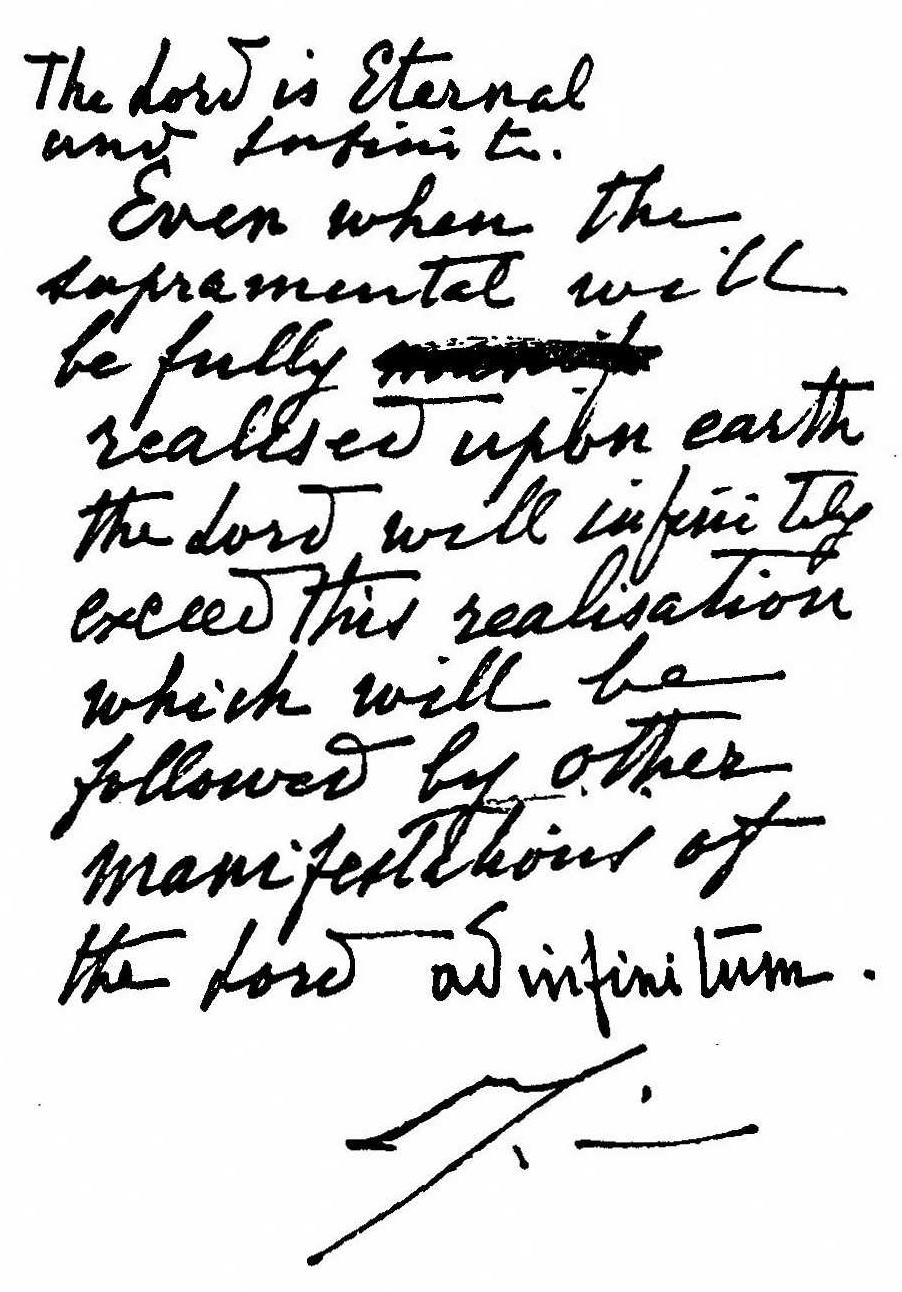 The Lord is Eternal
and Infinite.
Even when the
supramental will
be fully
realised upon earth
the Lord will infinitely
exceed this realisation
which will be
followed by other
manifestations of
the Lord ad infinitum.